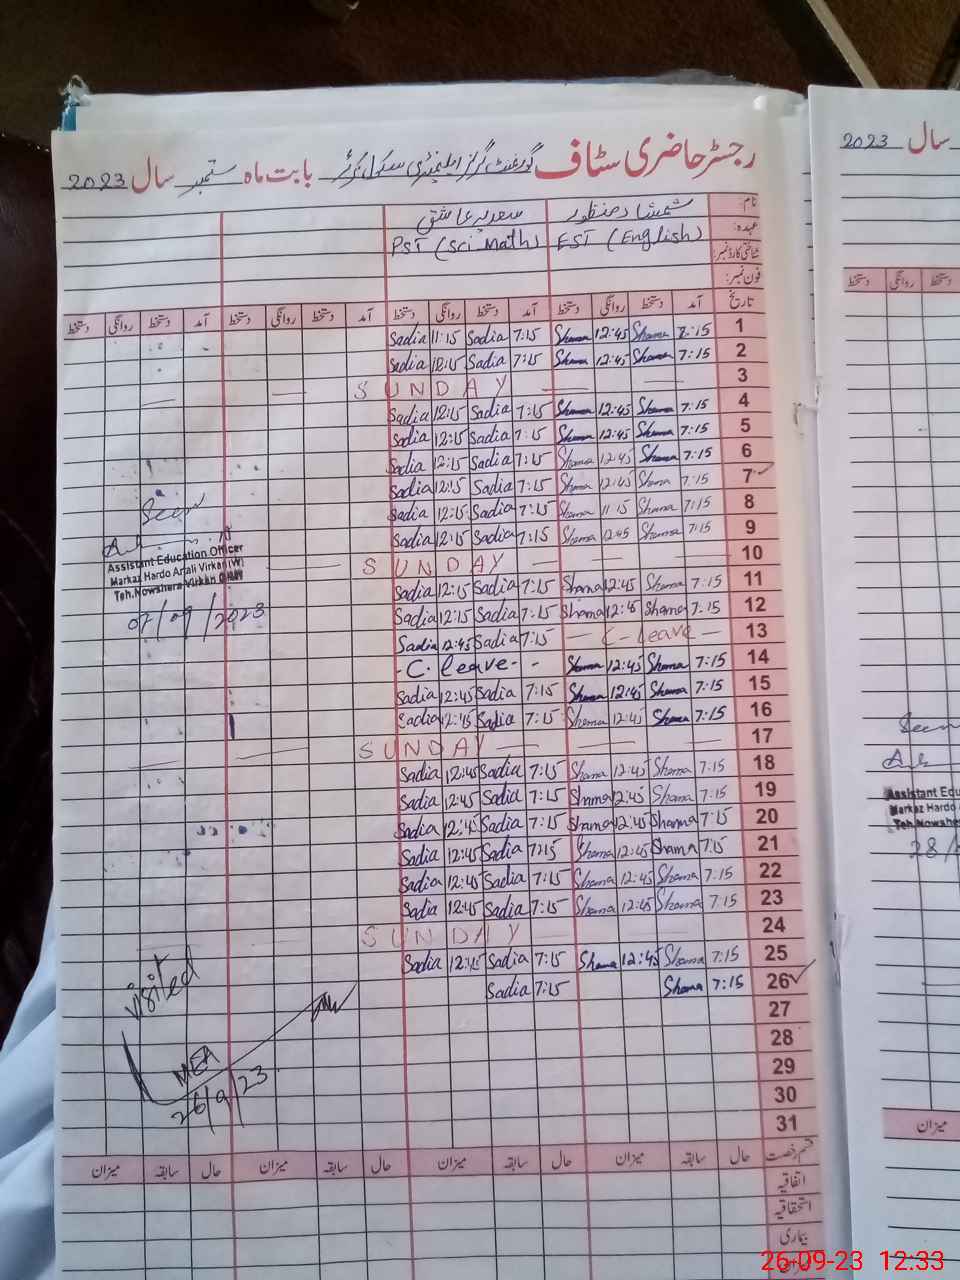 رجسٹر حاضری سٹاف گورنمنٹ گرلز ایلیمنٹری سکول بابت ماہ ستمبر سال 2023
نام: شمشاد منظور سعدیہ عاشق
عہدہ: EST (English) PST (Sci Math)
شناختی کارڈ نمبر:
فون نمبر:
تاریخ آمد دستخط روانگی دستخط آمد دستخط روانگی دستخط آمد دستخط روانگی دستخط آمد دستخط روانگی دستخط
Sadia 11:15 Sadia 7:15 Shama 12:45 Shama 7:15 1
Sadia 12:15 Sadia 7:15 Shama 12:45 Shama 7:15 2
SUNDAY 3
Sadia 12:15 Sadia 7:15 Shama 12:45 Shama 7:15 4
Sadia 12:15 Sadia 7:15 Shama 12:45 Shama 7:15 5
Sadia 12:15 Sadia 7:15 Shama 12:45 Shama 7:15 6
Sadia 12:15 Sadia 7:15 Shama 12:45 Shama 7:15 7
Sadia 12:15 Sadia 7:15 Shama 11:15 Shama 7:15 8
Sadia 12:15 Sadia 7:15 Shama 12:45 Shama 7:15 9
SUNDAY 10
Sadia 12:15 Sadia 7:15 Shama 12:45 Shama 7:15 11
Sadia 12:15 Sadia 7:15 Shama 12:45 Shama 7:15 12
Sadia 12:45 Sadia 7:15 - C-leave - 13
- C. leave - - Shama 12:45 Shama 7:15 14
Sadia 12:45 Sadia 7:15 Shama 12:45 Shama 7:15 15
Sadia 12:45 Sadia 7:15 Shama 12:45 Shama 7:15 16
SUNDAY 17
Sadia 12:45 Sadia 7:15 Shama 12:45 Shama 7:15 18
Sadia 12:45 Sadia 7:15 Shama 12:45 Shama 7:15 19
Sadia 12:45 Sadia 7:15 Shama 12:45 Shama 7:15 20
Sadia 12:45 Sadia 7:15 Shama 12:45 Shama 7:15 21
Sadia 12:45 Sadia 7:15 Shama 12:45 Shama 7:15 22
Sadia 12:45 Sadia 7:15 Shama 12:45 Shama 7:15 23
SUNDAY 24
Sadia 12:45 Sadia 7:15 Shama 12:45 Shama 7:15 25
Sadia 7:15 Shama 7:15 26
27
28
29
30
31
قسم رخصت حال سابقہ میزان حال سابقہ میزان حال سابقہ میزان حال سابقہ میزان
اتفاقیہ
استحقاقیہ
بیماری
میزان
Seen
Assistant Education Officer
Markaz Hardo Artali Virkan (W)
Teh.Nowshera Virkan
07/09/2023
visited
MEA
26/9/23
سال 2023
دستخط روانگی دستخط
Seen
Assistant Edu
Markaz Hardo
Teh.Nowshe
28/
میزان
26-09-23 12:33